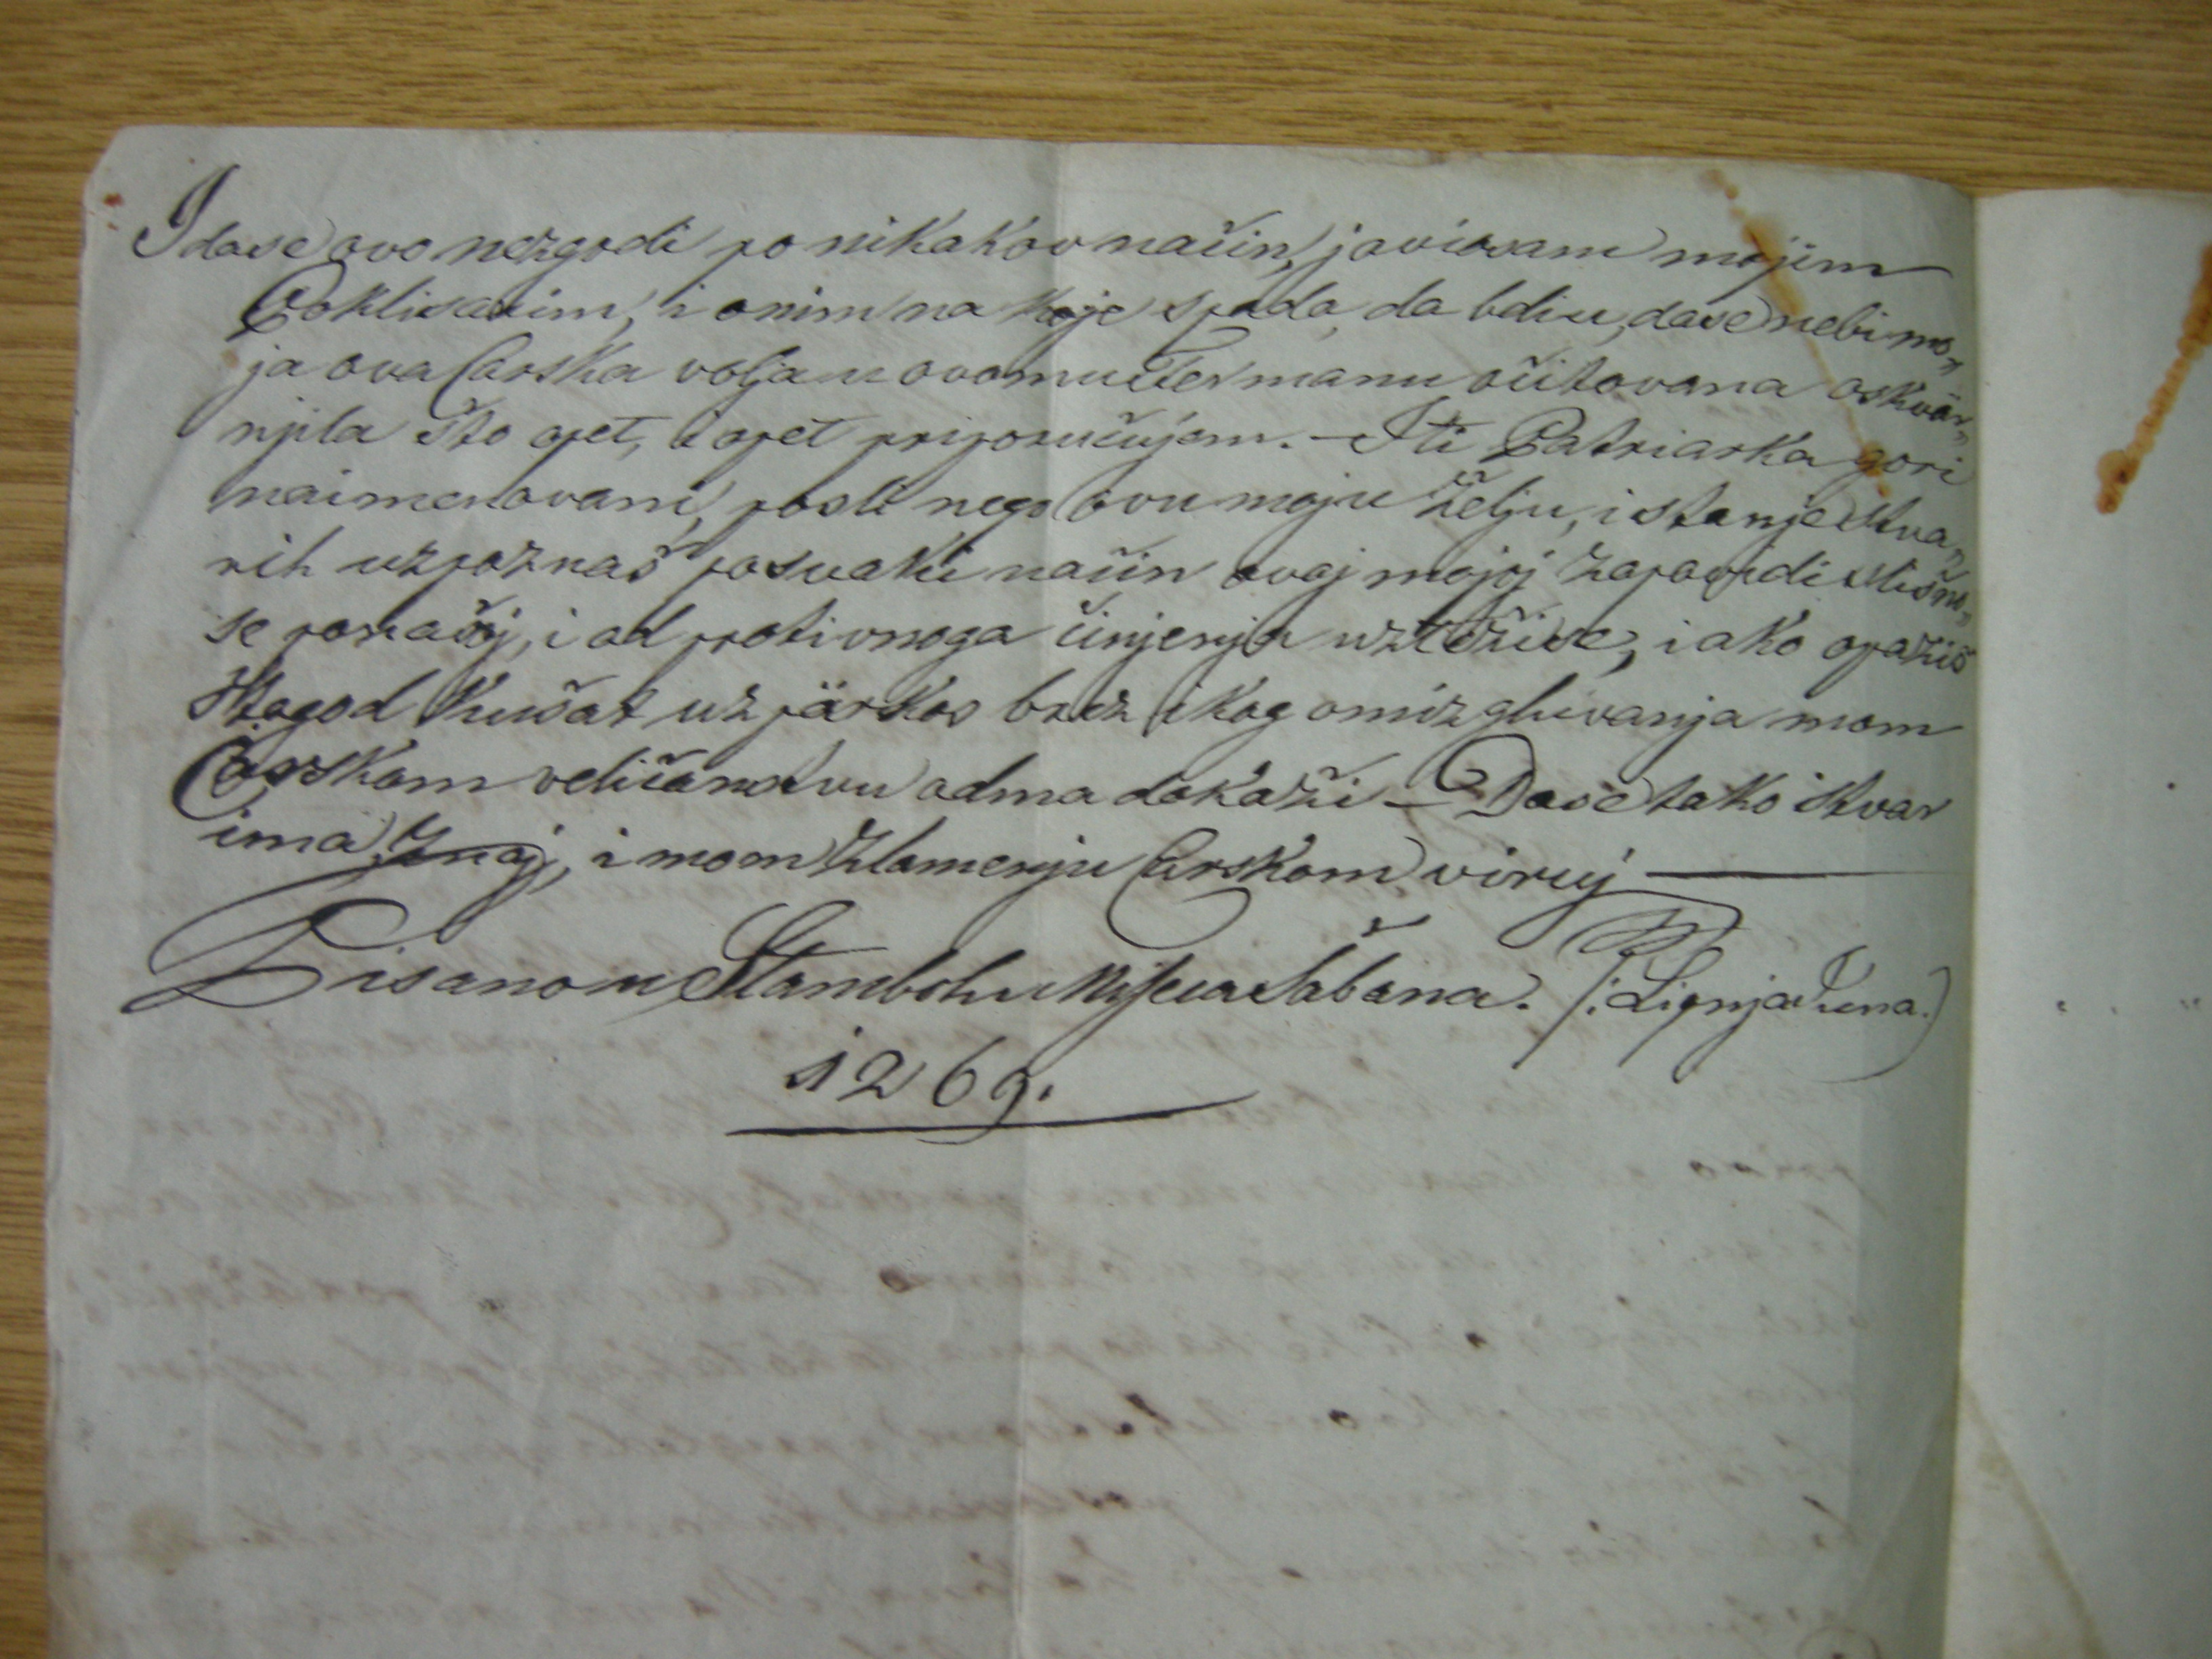 I dase ovo nezgodi po nikakov način, javiosam mojim
Poklisarim, i onim na koje spada, da bdiu, dase nebi mo„
ja ova Carska volja u ovomu Fermanu očitovana oskvär„
njila što opet, i opet priporučujem. – I ti Patriarka gori
naimenovani, posli nego ovu moju želju, i stanje stva„
rih uzpoznaš posvaki način ovoj mojoj zapovidi slišno„
se ponašaj, i od protivnoga činjenja uztežise, i ako opaziš
štogod kušat uzpärkos brez ikog omizglivanja mom
Carskom veličanstvu odma dokaži – Dase tako stvar
ima znaj, i mom zlamenju Carskom viruj —
Pisano u Stambolu Miseca Šabana. /: Lipnja Juna.)
1269.